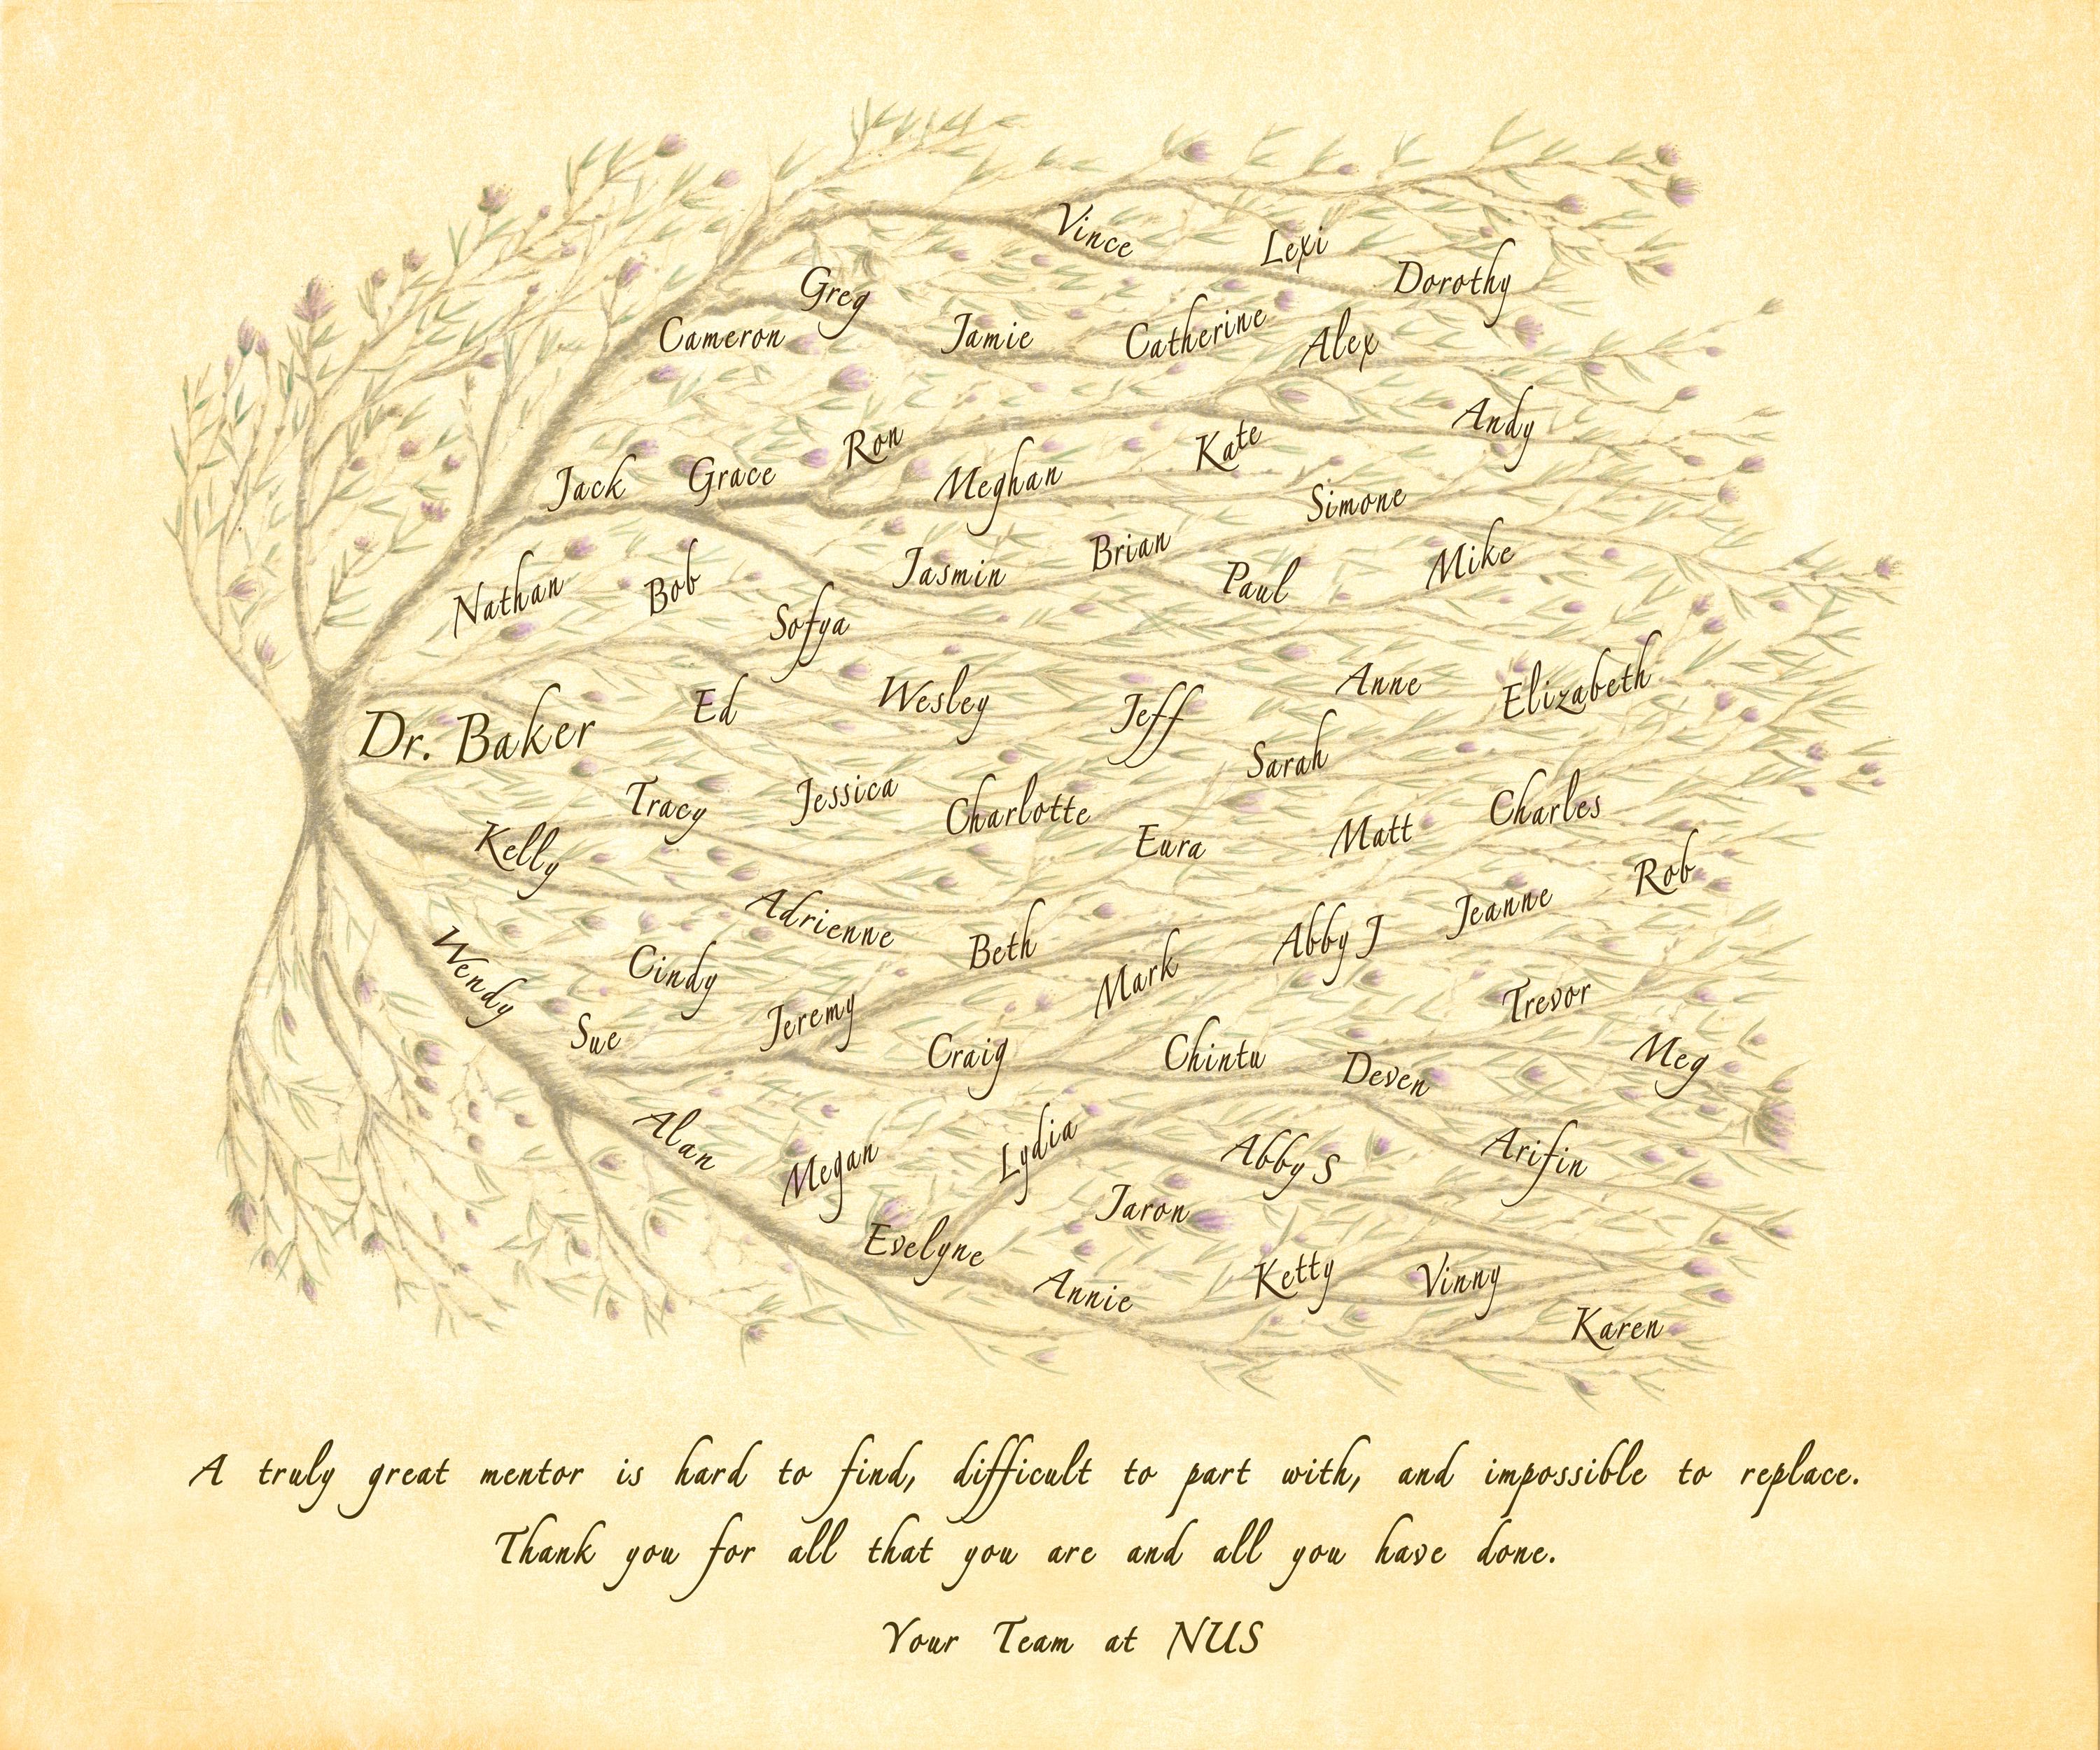 Vince
Lexi
Dorothy
Greg
Cameron
Jamie
Catherine
Alex
Andy
Ron
Kate
Jack
Grace
Meghan
Simone
Nathan
Bob
Jasmin
Brian
Paul
Mike
Sofya
Dr. Baker
Ed
Wesley
Jeff
Anne
Elizabeth
Sarah
Tracy
Jessica
Charlotte
Charles
Kelly
Eura
Matt
Rob
Adrienne
Beth
Abby J
Jeanne
Wendy
Cindy
Mark
Trevor
Sue
Jeremy
Craig
Chintu
Deven
Meg
Alan
Megan
Lydia
Abby S
Arifin
Jaron
Evelyne
Annie
Ketty
Vinny
Karen
A truly great mentor is hard to find, difficult to part with, and impossible to replace.
Thank you for all that you are and all you have done.
Your Team at NUS